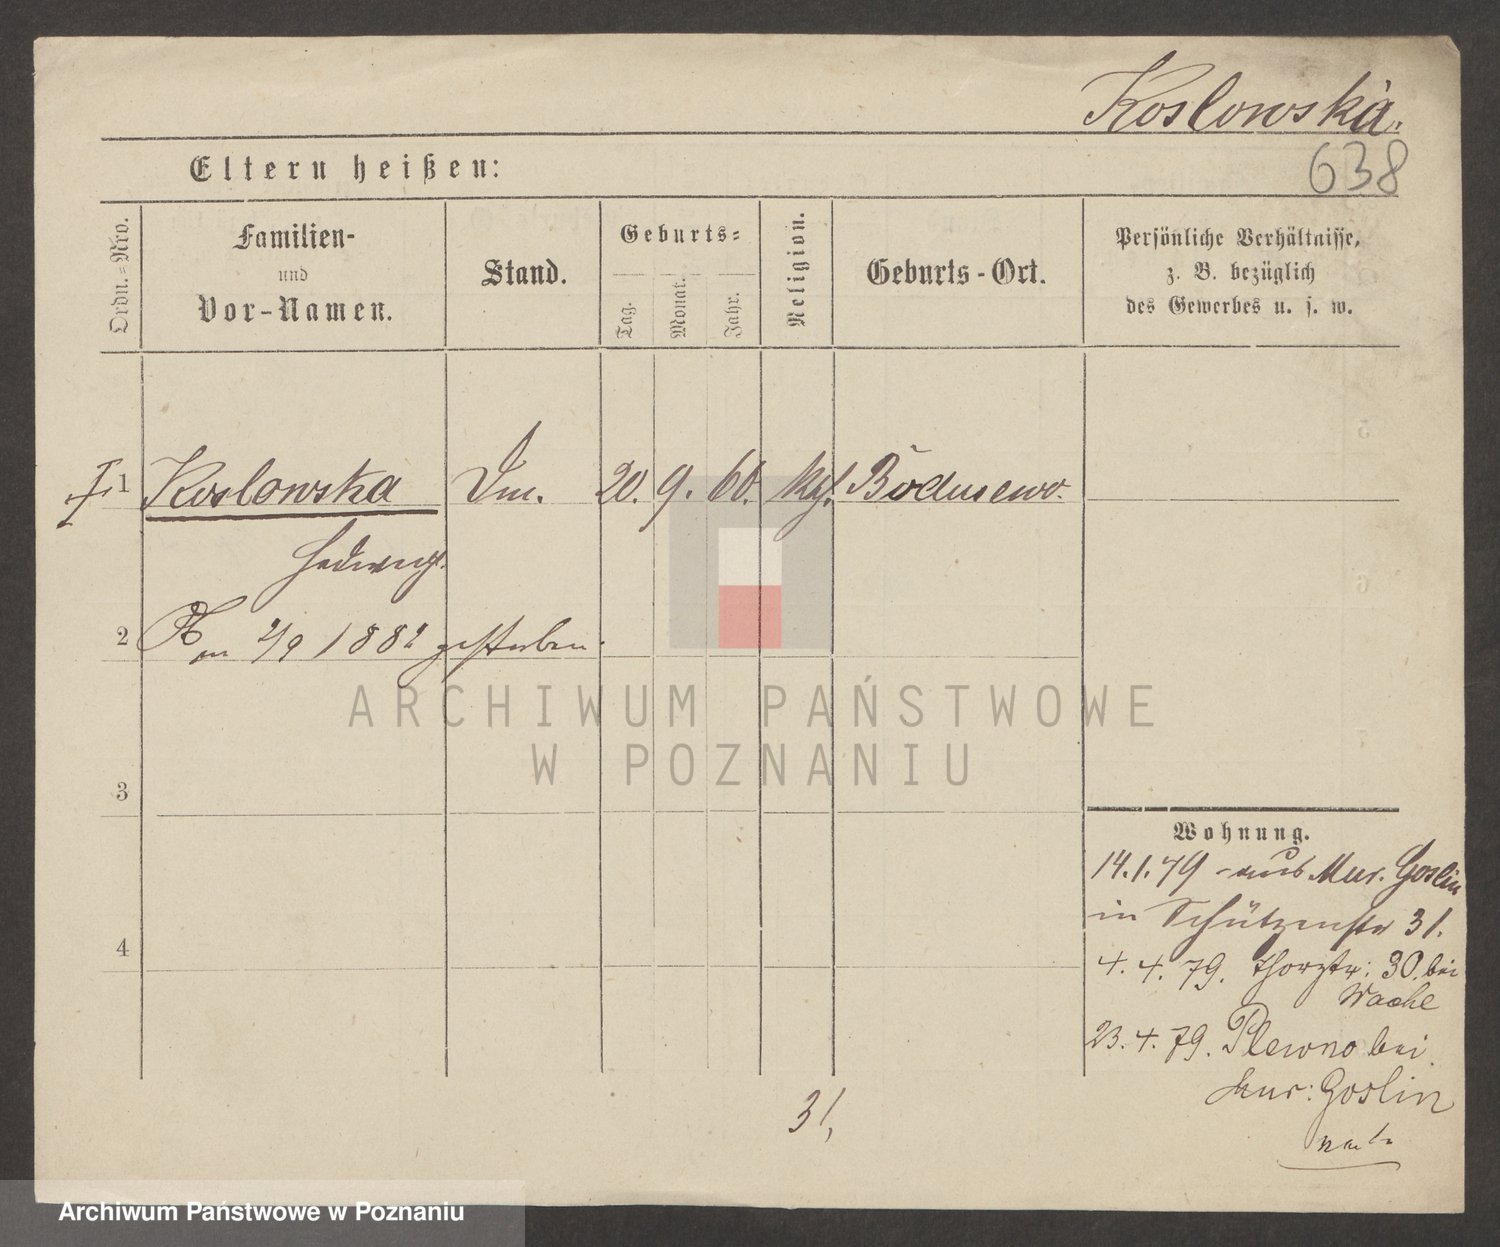 Koslowska.
638
Eltern heißen:
Ordn.=Nro.
Familien-
und
Vor-Namen.
Stand.
Geburts=
Tag.
Monat.
Jahr.
Religion.
Geburts-Ort.
Persönliche Verhältnisse,
z. B. bezüglich
des Gewerbes u. s. w.
1 Koslowska 20. 9. 60. Bodusewo.
Hedwig.
2 Am 2/9 1882 gestorben.
ARCHIWUM PAŃSTWOWE
W POZNANIU
3
4
Wohnung.
14.1.79 aus Mur. Goslin
in Schützenstr 31.
4. 4. 79. Thorstr: 30. bei
Wache
23. 4. 79. Plewno bei
Mur: Goslin
31,
Archiwum Państwowe w Poznaniu